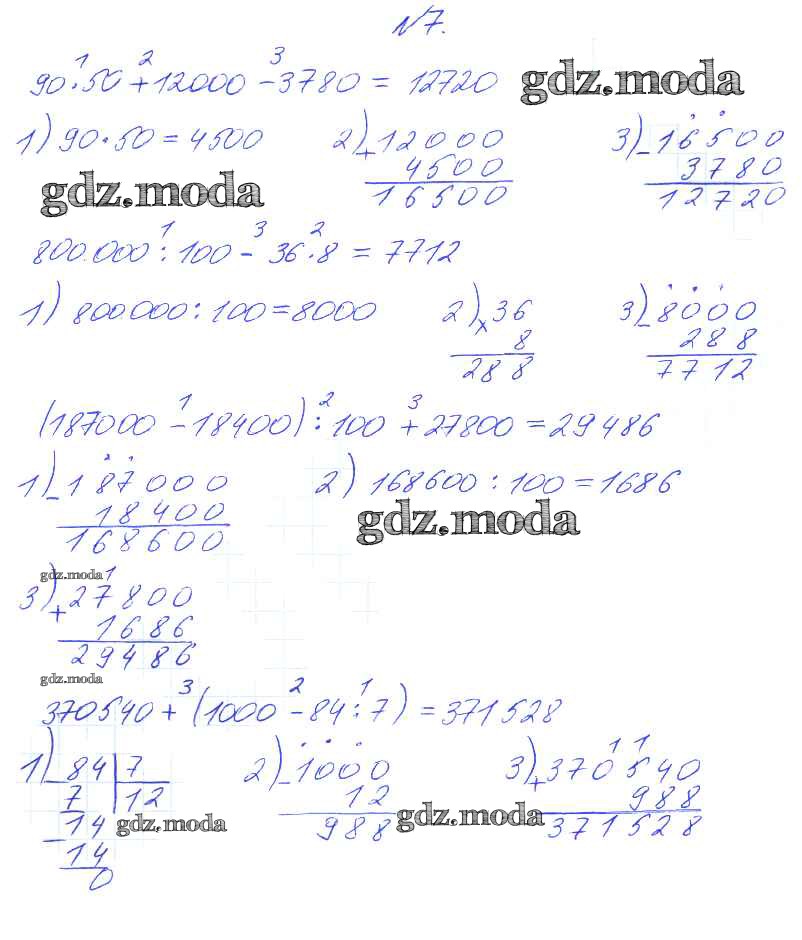 №7.
1 2 3
90·50+12000-3780 = 12720 gdz.moda
1) 90·50=4500 2) +12000 3) -16500
4500 3780
gdz.moda 16500 12720
1 3 2
800.000:100-36·8=7712
1) 800.000:100=8000 2) ×36 3) -8000
8 288
288 7712
1 2 3
(187000-18400):100+27800=29486
1) -187000 2) 168600:100=1686
18400 gdz.moda
168600
gdz.moda 1
3) +27800
1686
29486
gdz.moda 3 2 1
370540+(1000-84:7)=371528
1 1
1) -84 7 2) -1000 3) +370540
7 12 12 988
-14 gdz.moda 988 gdz.moda 371528
14
0